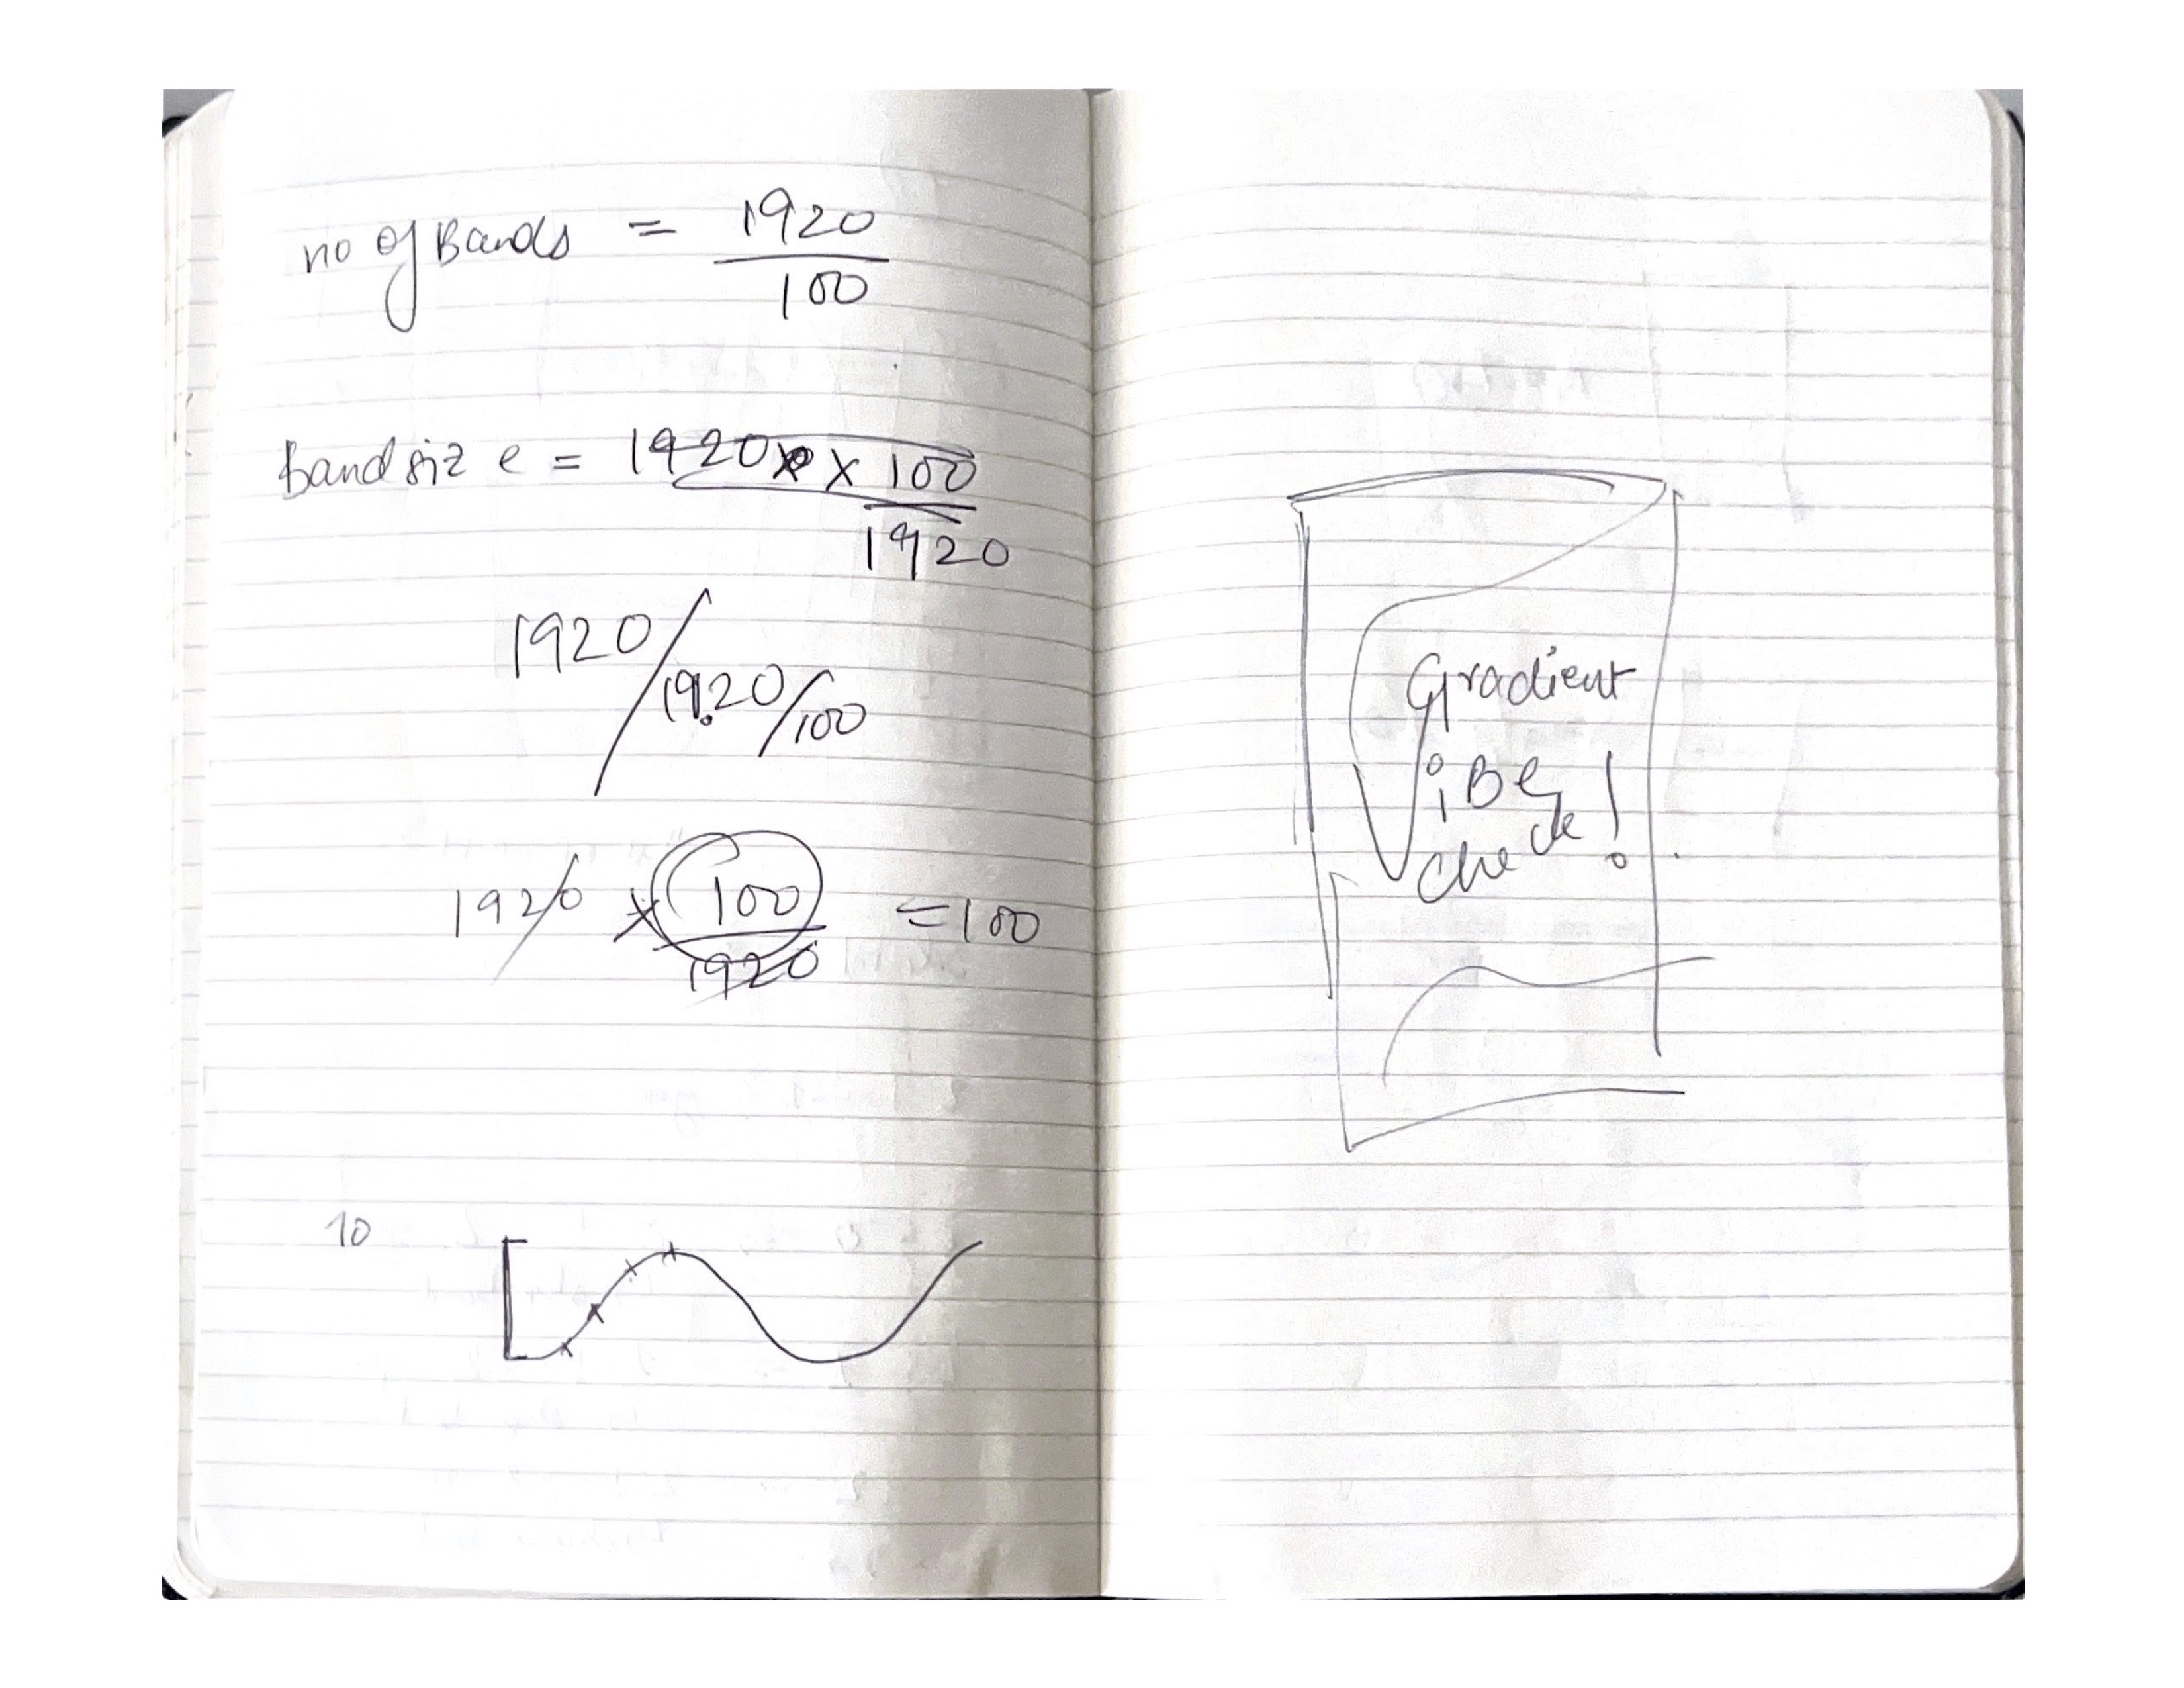 no of Bands = 1920
100
Band size = 1920 x x 100
1920
1920/1920/100
1920 x 100 = 100
1920
10
Gradient
ViBe
check!